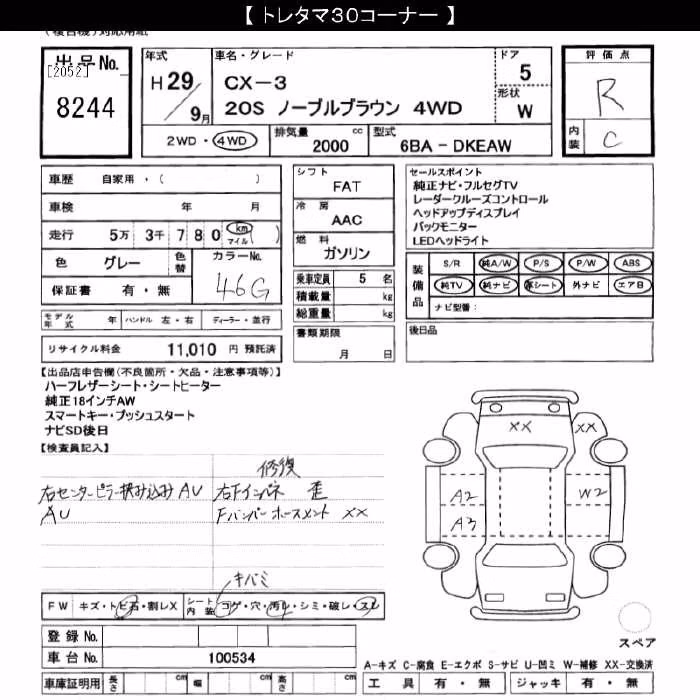 【 トレタマ30コーナー 】
(複合機)対応用紙
出品No.
[2052]
8244
年式
H 29/9月
車名・グレード
CX-3
20S ノーブルブラウン 4WD
ドア
5
形状
W
評価点
R
内装
C
2WD・4WD
排気量
2000 cc
型式
6BA - DKEAW
車歴 自家用・( )
車検 年 月
走行 5万 3千 7 8 0 km マイル ( )
色 グレー 色替 カラーNo.
46G
保証書 有・無
モデル年式 年 ハンドル 左・右 ディーラー・並行
リサイクル料金 11,010 円 預託済
シフト
FAT
冷房
AAC
燃料
ガソリン
乗車定員 5 名
積載量 kg
総重量 kg
書類期限
月 日
セールスポイント
純正ナビ・フルセグTV
レーダークルーズコントロール
ヘッドアップディスプレイ
バックモニター
LEDヘッドライト
装備品
S/R 純A/W P/S P/W ABS
純TV 純ナビ 革シート 外ナビ エアB
ナビ型番:
後日品
【出品店申告欄(不良箇所・欠品・注意事項等)】
ハーフレザーシート・シートヒーター
純正18インチAW
スマートキー・プッシュスタート
ナビSD後日
【検査員記入】
修復
右センターピラー挟み込み AU 右Fインパネ 歪
AU Fバンパーホースメント XX
キバミ
FW キズ・トビ石・割レX シート内装 コゲ・穴・汚レ・シミ・破レ・スレ
登録No.
車台No. 100534
車庫証明用 長さ cm 幅 cm 高さ cm
XX
XX
A2
W2
A3
スペア
A-キズ C-腐食 E-エクボ S-サビ U-凹ミ W-補修 XX-交換済
工具 有・無 ジャッキ 有・無